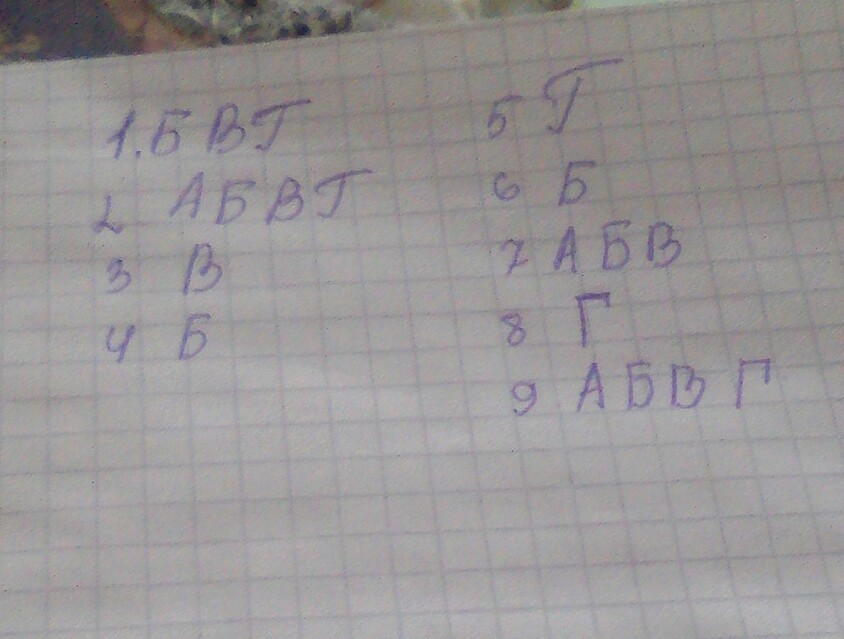 1. Б В Г
2 А Б В Г
3 В
4 Б
5 Г
6 Б
7 А Б В
8 Г
9 А Б В Г